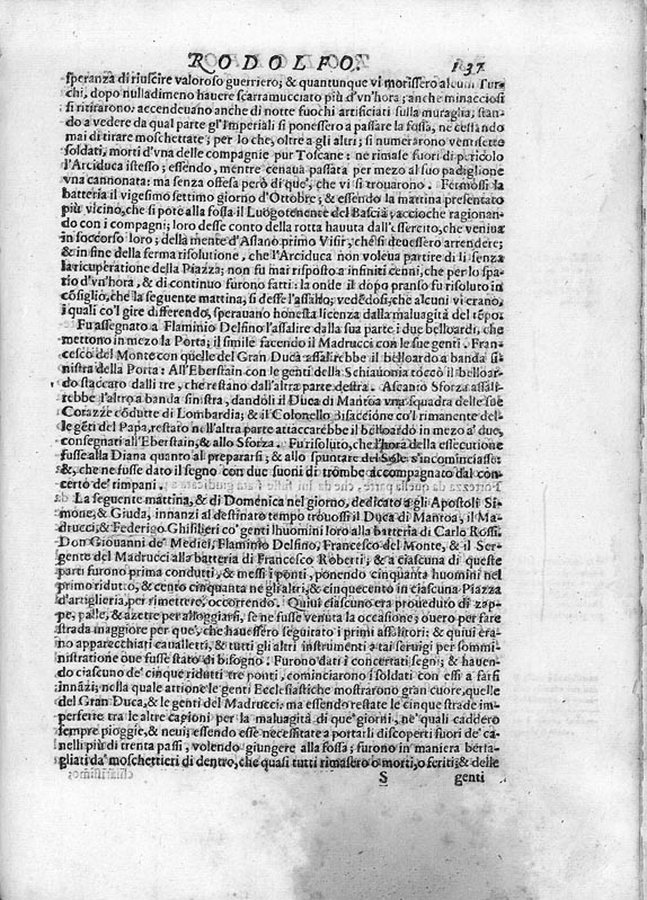 RODOLFO. 137
speranza di riuscire valoroso guerriero; & quantunque vi morissero alcuni Tur-
chi, dopo nulladimeno hauere scarramucciato più d'vn'hora; anche minacciosi
si ritirarono: accendeuano anche di notte fuochi artificiati sulla muraglia, stan-
do a vedere da qual parte gl'Imperiali si ponessero a passare la fossa, ne cessando
mai di tirare moschettate; per lo che, oltre a gli altri; si numerarono ventisette
soldati, morti d'vna delle compagnie pur Toscane: ne rimase fuori di pericolo
l'Arciduca istesso; essendo, mentre cenaua passata per mezo al suo padiglione
vna cannonata: ma senza offesa però di que', che vi si trouarono. Fermossi la
batteria il vigesimo settimo giorno d'Ottobre; & essendo la mattina presentato
più vicino, che si potè alla fossa il Luogotenente del Bascià; acciòche ragionan-
do con i compagni; loro desse conto della rotta hauuta dall'essercito, che veniua
in soccorso loro; della mente d'Assano primo Visir, che si douessero arrendere;
& in fine della ferma risolutione, che l'Arciduca non voleua partire di lì senza
la ricuperatione della Piazza; non fu mai risposto a infiniti cenni, che per lo spa-
tio d'vn'hora, & di continuo furono fatti: la onde il dopo pranso fu risoluto in
cõsiglio, che la seguente mattina, si desse l'assalto; vedẽdosi, che alcuni vi erano,
i quali co'l gire differendo, sperauano honesta licenza dalla maluagità del tẽpo.
Fu assegnato a Flaminio Delfino l'assalire dalla sua parte i due belloardi, che
mettono in mezo la Porta; il simile facendo il Madrucci con le sue genti. Fran-
cesco del Monte con quelle del Gran Duca assalirebbe il belloardo a banda si-
nistra della Porta: All'Eberstain con le genti della Schiauonia toccò il belloar-
do staccato dalli tre, che restano dall'altra parte destra. Ascanio Sforza assali-
rebbe l'altro a banda sinistra, dandoli il Duca di Mantoa vna squadra delle sue
Corazze cõdutte di Lombardia; & il Colonello Bisaccione co'l rimanente del-
le gẽti del Papa, restato nell'altra parte attaccarebbe il belloardo in mezo a' due,
consegnati all'Eberstain, & allo Sforza. Fu risoluto, che l'hora della essecutione
fusse alla Diana quanto al prepararsi; & allo spuntare del Sole s'incominciasse:
&, che ne fusse dato il segno con due suoni di trombe accompagnato dal con-
certo de' timpani.
La seguente mattina, & di Domenica nel giorno, dedicato a gli Apostoli Si-
mone, & Giuda, innanzi al destinato tempo trouossi il Duca di Mantoa, il Ma-
drucci, & Federigo Ghislilieri co' genti lhuomini loro alla batteria di Carlo Rossi,
Don Giouanni de' Medici, Flaminio Delfino, Francesco del Monte, & il Ser-
gente del Madrucci alla batteria di Francesco Roberti; & a ciascuna di queste
parti furono prima condutti, & messi i ponti, ponendo cinquanta huomini nel
primo ridutto, & cento cinquanta ne gli altri; & cinquecento in ciascuna Piazza
d'artiglieria, per rimettere, occorrendo. Quiui ciascuno era proueduto di zap-
pe, palle, & azette per alloggiarsi, se ne fusse venuta la occasione; ouero per fare
strada maggiore per que', che hauessero seguitato i primi assalitori: & quiui era-
no apparecchiati caualletti, & tutti gli altri instrumenti a tai seruigi per sommi-
nistratione oue fusse stato di bisogno. Furono dati i concertati segni; & hauen-
do ciascuno de' cinque ridutti tre ponti, cominciarono i soldati con essi a farsi
innãzi; nella quale attione le genti Ecclesiastiche mostrarono gran cuore, quelle
del Gran Duca, & le genti del Madrucci: ma essendo restate le cinque strade im-
perfette tra le altre cagioni per la maluagità di que' giorni, ne' quali caddero
sempre pioggie, & neui; essendo esse necessitate a portarli discoperti fuori de' ca-
nelli più di trenta passi, volendo giungere alla fossa; furono in maniera bersa-
gliati da' moschettieri di dentro, che quasi tutti rimasero o morti, o feriti; & delle
S genti